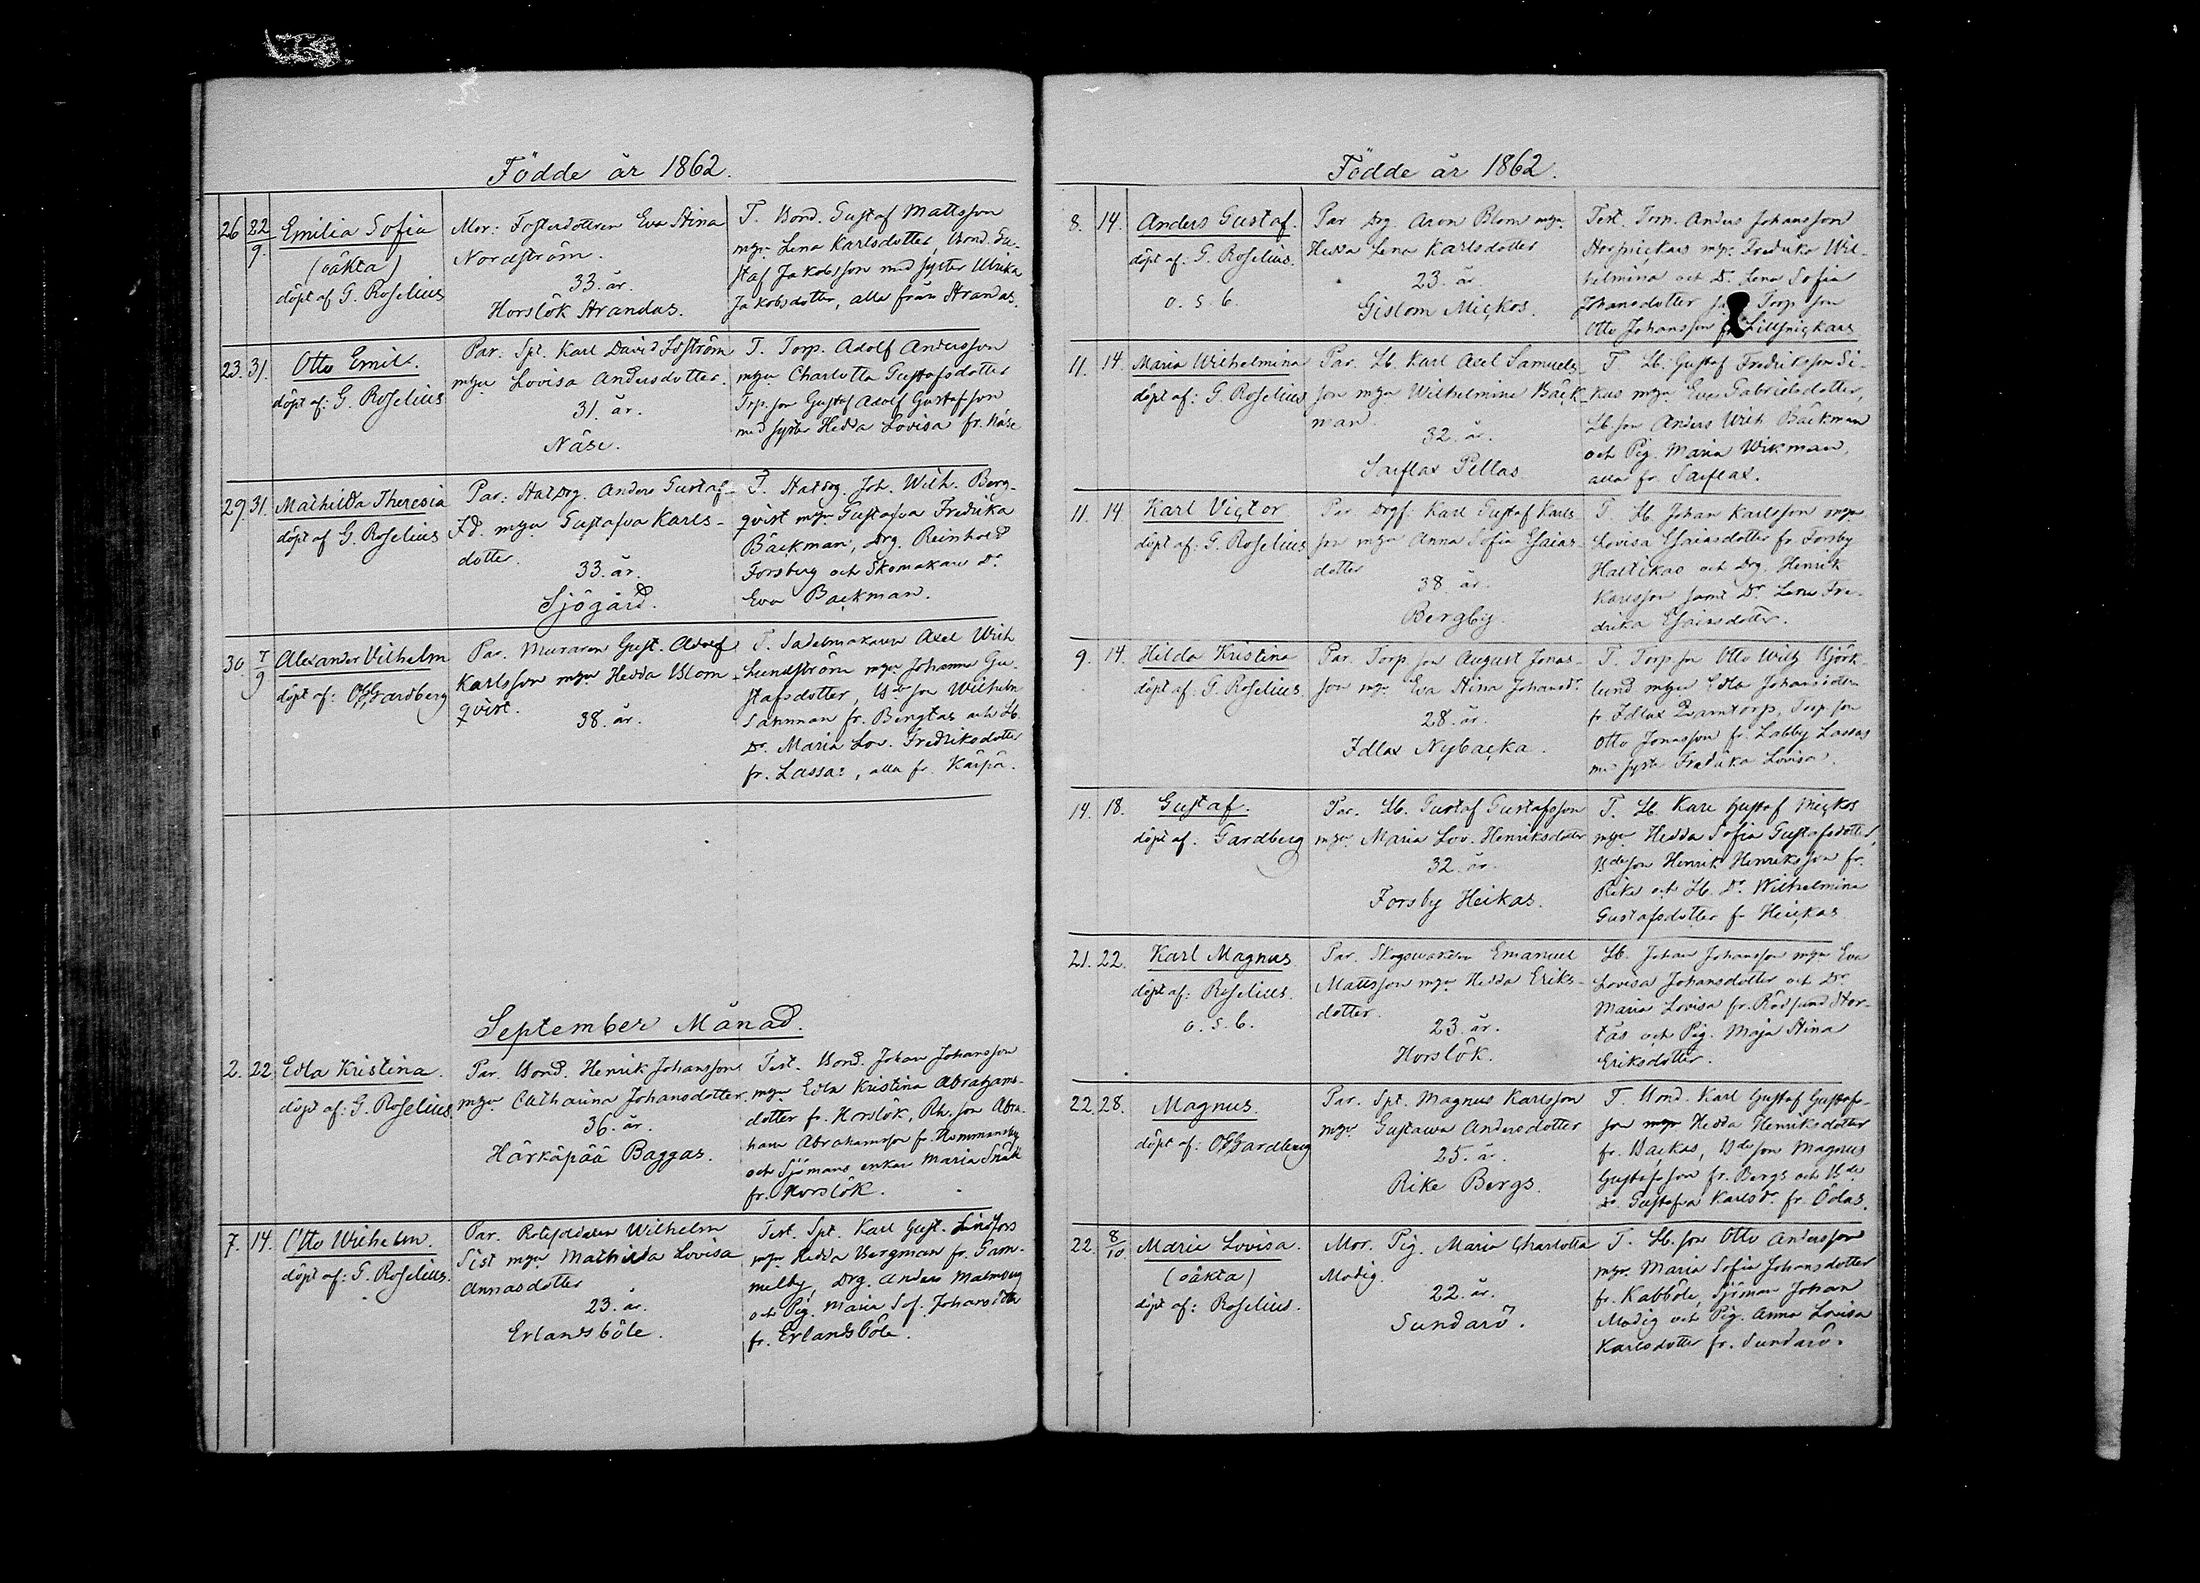 Födde år 1862.
26 22/9. Emilia Sofia
(oäkta)
döpt af G. Roselius
Mor: Fosterdottren Eva Stina
Nordström.
33. år.
Horslök Strandas.
T. Bond. Gustaf Mattsson
mgn Lena Karlsdotter, Bond. Gu-
staf Jakobsson med syster Ulrika
Jakobsdotter, alla från Strandas.
23. 31. Otto Emil.
döpt af: G. Roselius
Par: Spt. Karl David
mgn Lovisa Andersdotter.
31. år.
Näse.
T. Torp. Adolf Andersson
mgn Charlotta Gustafsdotter
Torp. son Gustaf Adolf Gustafsson
med syster Hedda Lovisa fr. Näse
29. 31. Mathilda Theresia
döpt af G. Roselius
Par: Statdrg. Anders Gustaf
Fd. mgn Gustafva Karls-
dotter.
33. år.
Sjögård.
T. Statdrg. Joh. Wilh. Berg-
qvist mgn Gustafva Fredrika
Bäckman, Drg. Reinhold
Forsberg och Skomakare Dr
Eva Bäckman.
30. 7/9 Alexander Vilhelm
döpt af: Gardberg
Par. Muraren Gust. Adolf
Karlsson mgn Hedda Blom-
qvist.
38. år.
T. Sadelmakaren Axel Wilh
Lundström mgn Johanna Gu-
stafsdotter, son Wilhelm
Sannman fr. Bengtas och Lb.
Dr. Maria Lov. Fredriksdotter
fr. Lassas, alla fr. Kärpä.
September Månad.
2. 22 Edla Kristina.
döpt af: G. Roselius
Par. Bond. Henrik Johansson
mgn Catharina Johansdotter
36. år.
Härkäpää Baggas.
Test. Bond. Johan Johansson
mgn Edla Kristina Abrahams-
dotter fr. Horslök, Rh. son Abra-
ham Abrahamsson fr.
och Sjömans enkan Maria
fr. Horslök.
7. 14. Otto Wilhelm.
döpt af: G. Roselius.
Par. Rotesoldaten Wilhelm
Sist mgn Mathilda Lovisa
Annasdotter
23. år.
Erlandsböle.
Test. Spt. Karl Gust. Lindfors
mgn Hedda Bergman fr. Gam-
melby, Drg. Anders Malmberg
och Pig. Maria Sof. Johansdotter
fr. Erlandsböle.
Födde år 1862.
8. 14. Anders Gustaf.
döpt af: G. Roselius.
o. s. b.
Par Drg Aron Blom mgn.
Hedda Lena Karlsdotter
23. år
Gislom Mickos.
Test. Torp. Anders Johansson
mgn. Fredrika Wil-
helmina och Dr. Lena Sofia
Johansdotter Torp. son
Otto Johansson
11. 14. Maria Wilhelmina
döpt af: G. Roselius
Par. Lb. Karl Axel Samuels-
son mgn Wilhelmina Bäck-
man.
32. år.
Sarflax Pellas
T. Lb. Gustaf Fredriksson Si-
kas mgn. Eva Gabrielsdotter,
Lb. son Anders Wilh Bäckman
och Pig. Maria Wikman,
alla fr Sarflax.
11. 14 Karl Victor
döpt af: G. Roselius
Par Drgf. Karl Gustaf Karls
son mgn Anna Sofia Esaias-
dotter
38 år.
Bergby.
T. Lb. Johan Karlsson mgn
Lovisa Esaiasdotter fr. Forsby
och Drg. Henrik
Karlsson samt Dr. Lena Fre-
drika Esaiasdotter.
9. 14. Hilda Kristina
döpt af: G. Roselius.
Par. Torp. son August Jonas-
son mgn Eva Stina Johansdr.
28. år.
Idlax Nybacka.
T. Torp son Otto Wilh Björk-
lund mgn Edla Johansdotter
fr. Idlax Damtorp, Torp. son
Otto Jonasson fr. Labby Lassas
med syster Fredrika Lovisa.
14. 18. Gustaf.
döpt af. Gardberg
Par. Lb. Gustaf Gustafsson
mgn. Maria Lov. Henriksdotter
32. år.
Forsby Heikas.
T. Lb. Karl Gustaf Mickos
mgn Hedda Sofia Gustafsdotter,
Bdeson Henrik Henriksson fr.
Rike och Lb. Dr. Wilhelmina
Gustafsdotter fr Heickas
21. 22. Karl Magnus
döpt af: Roselius.
o. s. b.
Par. Skogswaktaren Emanuel
Mattsson mgn Hedda Eriks-
dotter.
23. år.
Horslök.
Lb. Johan Johansson mgn Eva
Lovisa Johansdotter och Dr
Maria Lovisa fr. Rödsund Stor-
täs och Pig. Maja Stina
Eriksdotter.
22. 28. Magnus.
döpt af: Gardberg
Par. Spt. Magnus Karlsson
mgn Gustawa Andersdotter
25. år.
Rike Bergs.
T. Bond. Karl Gustaf Gustafs-
son mgn Hedda Henriksdotter
fr. Backas, Bdeson Magnus
Gustafsson fr. Bergs och Bde
Dr. Gustafva Karlsdr. fr. Ödas.
22. 8/10 Maria Lovisa.
(oäkta)
döpt af: Roselius.
Mor. Pig. Maria Charlotta
Modig.
22. år.
Sundarö.
T. Lb. son Otto Andersson
mgn. Maria Sofia Johansdotter
fr. Kabböle, Sjöman Johan
Modig och Pig. Anna Lovisa
Karlsdotter fr. Sundarö.